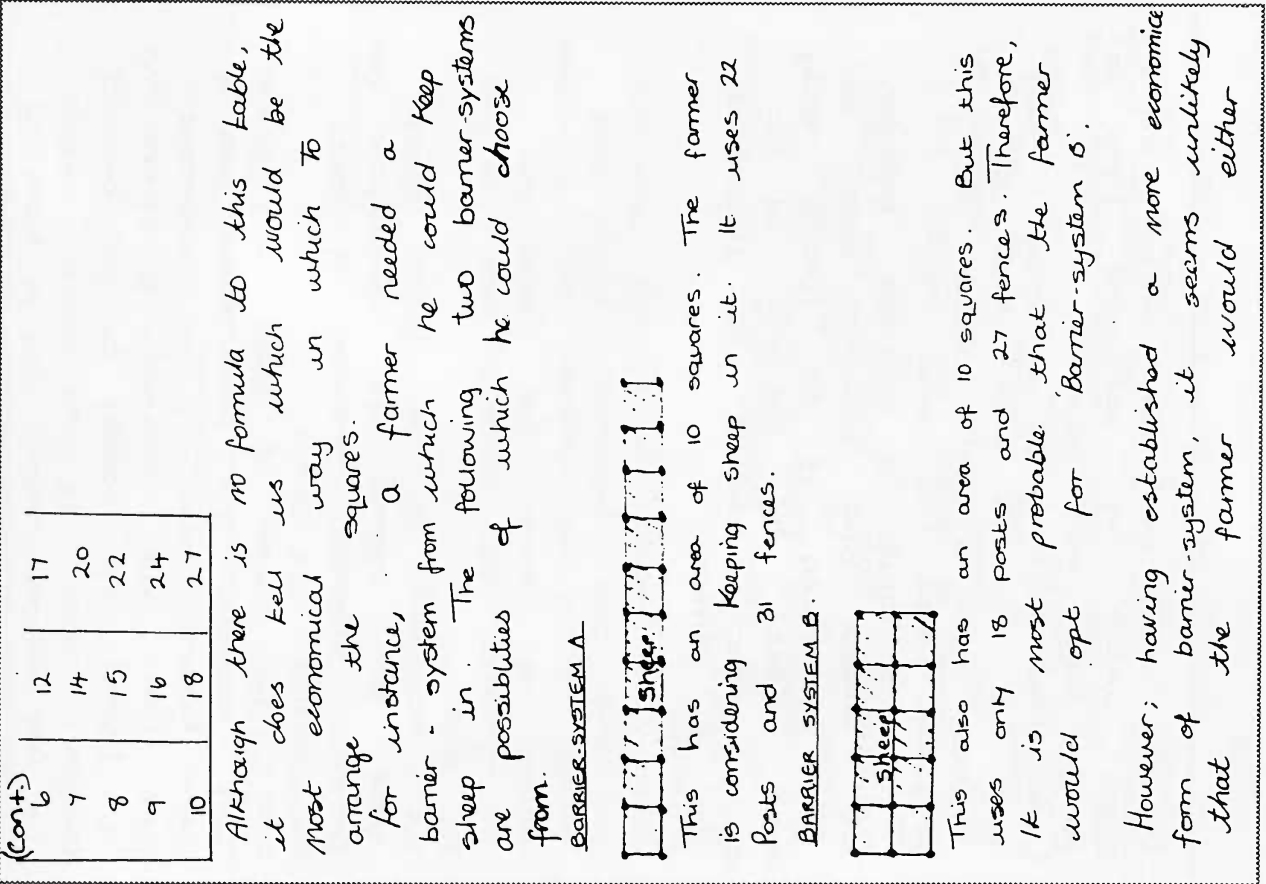 (Cont.)
6 12 17
7 14 20
8 15 22
9 16 24
10 18 27
Although there is no formula to this table,
it does tell us which would be the
most economical way in which to
arrange the squares.
for instance, a farmer needed a
barrier-system from which he could keep
sheep in. The following two barrier-systems
are possiblities of which he could choose
from.
BARRIER-SYSTEM A
sheep
This has an area of 10 squares. The farmer
is considering keeping sheep in it. It uses 22
Posts and 31 fences.
BARRIER SYSTEM B.
sheep
This also has an area of 10 squares. But this
uses only 18 posts and 27 fences. Therefore,
It is most probable that the farmer
would opt for 'Barrier-system B'.
However; having established a more economice
form of barrier-system, it seems unlikely
that the farmer would either